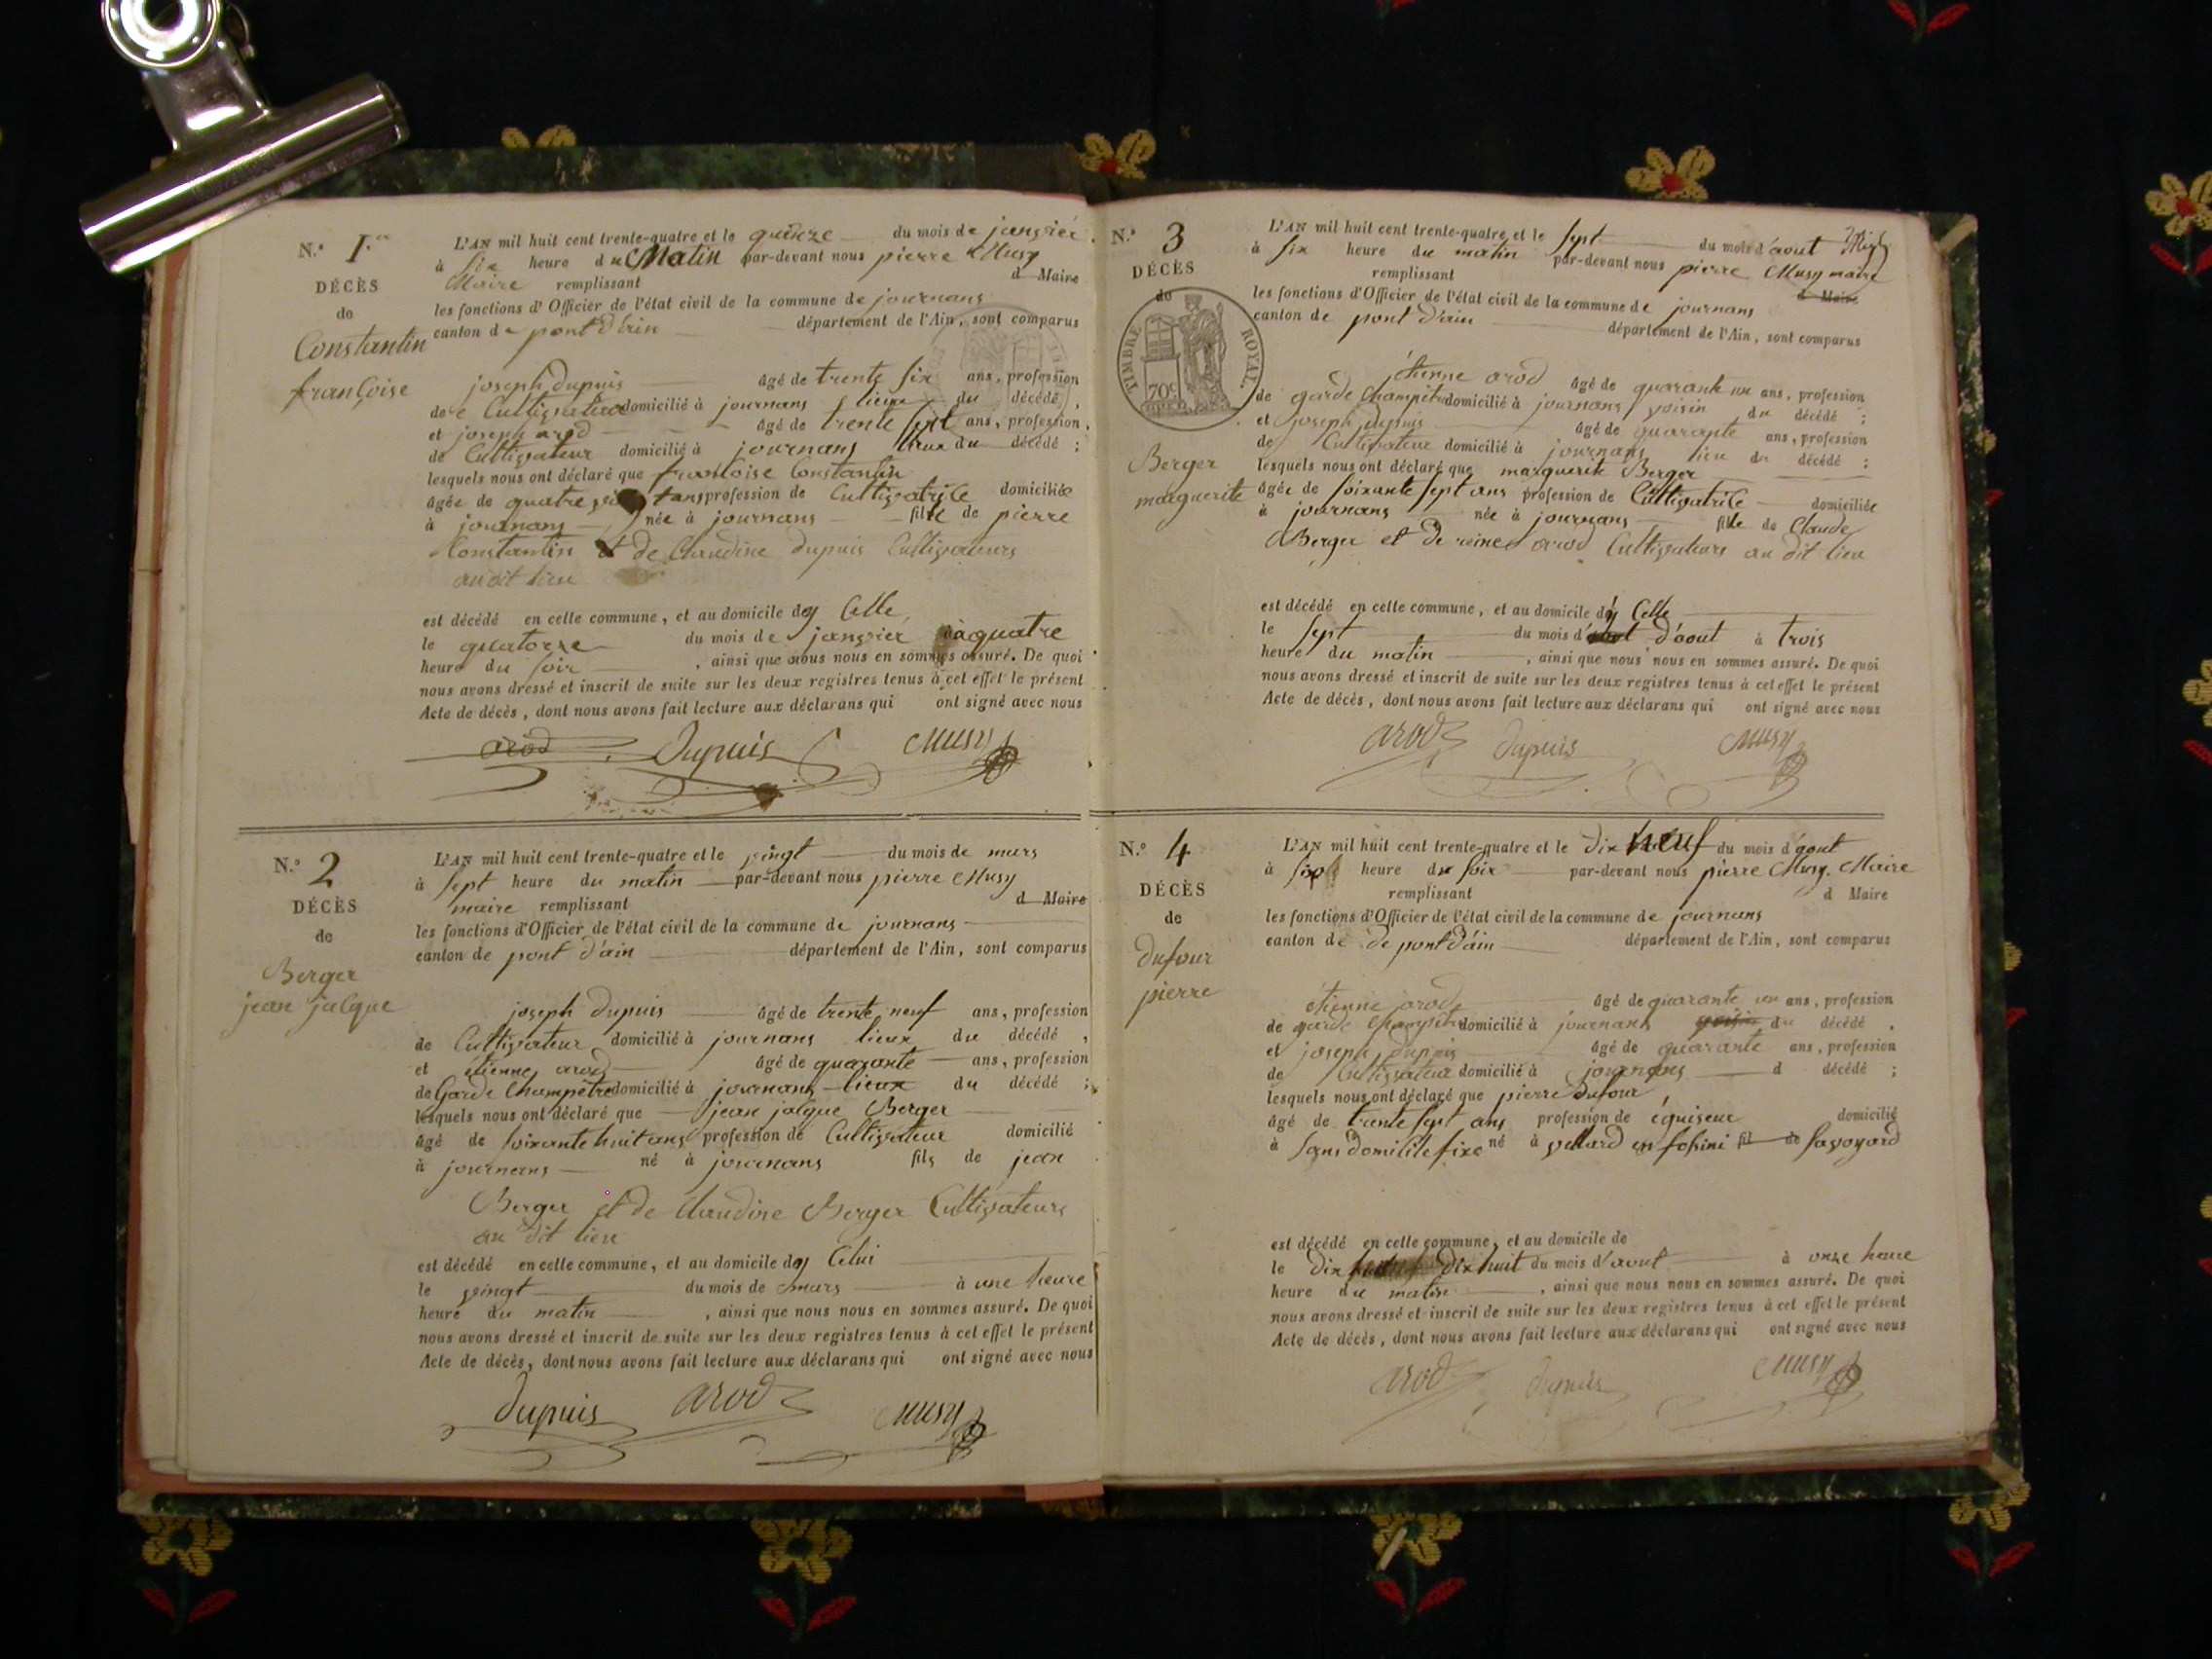 N.º 1.er
DÉCÈS
de
Constantin
françoise
L'AN mil huit cent trente-quatre et le quinze du mois de janvier
à six heure du Matin par-devant nous pierre Musy
Maire remplissant d Maire
les fonctions d'Officier de l'état civil de la commune de journans
canton de pont d'ain département de l'Ain, sont comparus
joseph dupuis âgé de trente six ans, profession
de Cultivateur domicilié à journans lieux du décédé,
et joseph arod âgé de trente sept ans, profession
de Cultivateur domicilié à journans lieux du décédé ;
lesquels nous ont déclaré que françoise Constantin
âgée de quatre ans profession de Cultivatrice domiciliée
à journans née à journans fille de pierre
Constantin et de Claudine dupuis Cultivateurs
au dit lieu
est décédé en celle commune, et au domicile dy Celle
le quatorze du mois de janvier à quatre
heure du soir, ainsi que nous nous en sommes assuré. De quoi
nous avons dressé et inscrit de suite sur les deux registres tenus à cet effet le présent
Acte de décès, dont nous avons fait lecture aux déclarans qui ont signé avec nous
arod dupuis Musy
N.º 2
DÉCÈS
de
Berger
jean jacque
L'AN mil huit cent trente-quatre et le vingt du mois de mars
à sept heure du matin par-devant nous pierre Musy
maire remplissant d Maire
les fonctions d'Officier de l'état civil de la commune de journans
canton de pont d'ain département de l'Ain, sont comparus
joseph dupuis âgé de trente neuf ans, profession
de Cultivateur domicilié à journans lieux du décédé,
et étienne arod âgé de quarante ans, profession
de Garde Champêtre domicilié à journans lieux du décédé ;
lesquels nous ont déclaré que jean jacque Berger
âgé de soixante huit ans profession de Cultivateur domicilié
à journans né à journans fils de jean
Berger et de Claudine Berger Cultivateurs
au dit lieu
est décédé en celle commune, et au domicile dy Celui
le vingt du mois de mars à une heure
heure du matin, ainsi que nous nous en sommes assuré. De quoi
nous avons dressé et inscrit de suite sur les deux registres tenus à cet effet le présent
Acte de décès, dont nous avons fait lecture aux déclarans qui ont signé avec nous
dupuis arod Musy
N.º 3
DÉCÈS
de
TIMBRE ROYAL.
70c
Berger
marguerite
L'AN mil huit cent trente-quatre et le sept du mois d'aout
à six heure du matin par-devant nous pierre Musy maire
remplissant d Maire
les fonctions d'Officier de l'état civil de la commune de journans
canton de pont d'ain département de l'Ain, sont comparus
étienne arod âgé de quarante un ans, profession
de garde Champêtre domicilié à journans voisin du décédé ;
et joseph dupuis âgé de quarante ans, profession
de Cultivateur domicilié à journans lieu du décédé ;
lesquels nous ont déclaré que marguerite Berger
âgée de soixante sept ans profession de Cultivatrice domiciliée
à journans née à journans fille de Claude
Berger et de reine arod Cultivateurs au dit lieu
est décédé en celle commune, et au domicile dy Celle
le sept du mois d'aout à trois
heure du matin, ainsi que nous nous en sommes assuré. De quoi
nous avons dressé et inscrit de suite sur les deux registres tenus à cet effet le présent
Acte de décès, dont nous avons fait lecture aux déclarans qui ont signé avec nous
arod dupuis Musy
N.º 4
DÉCÈS
de
dufour
pierre
L'AN mil huit cent trente-quatre et le dix neuf du mois d'aout
à heure du soir par-devant nous pierre Musy. Maire
remplissant d Maire
les fonctions d'Officier de l'état civil de la commune de journans
canton de de pont d'ain département de l'Ain, sont comparus
étienne arod âgé de quarante un ans, profession
de garde Champêtre domicilié à journans voisin du décédé,
et joseph dupuis âgé de quarante ans, profession
de Cultivateur domicilié à journans d décédé ;
lesquels nous ont déclaré que pierre dufour
âgé de trente sept ans profession de domicilié
à sans domicile fixe né à en fil de savoyard
est décédé en celle commune, et au domicile de
le dix dix huit du mois d'aout à onze heure
heure du matin, ainsi que nous nous en sommes assuré. De quoi
nous avons dressé et inscrit de suite sur les deux registres tenus à cet effet le présent
Acte de décès, dont nous avons fait lecture aux déclarans qui ont signé avec nous
arod dupuis Musy